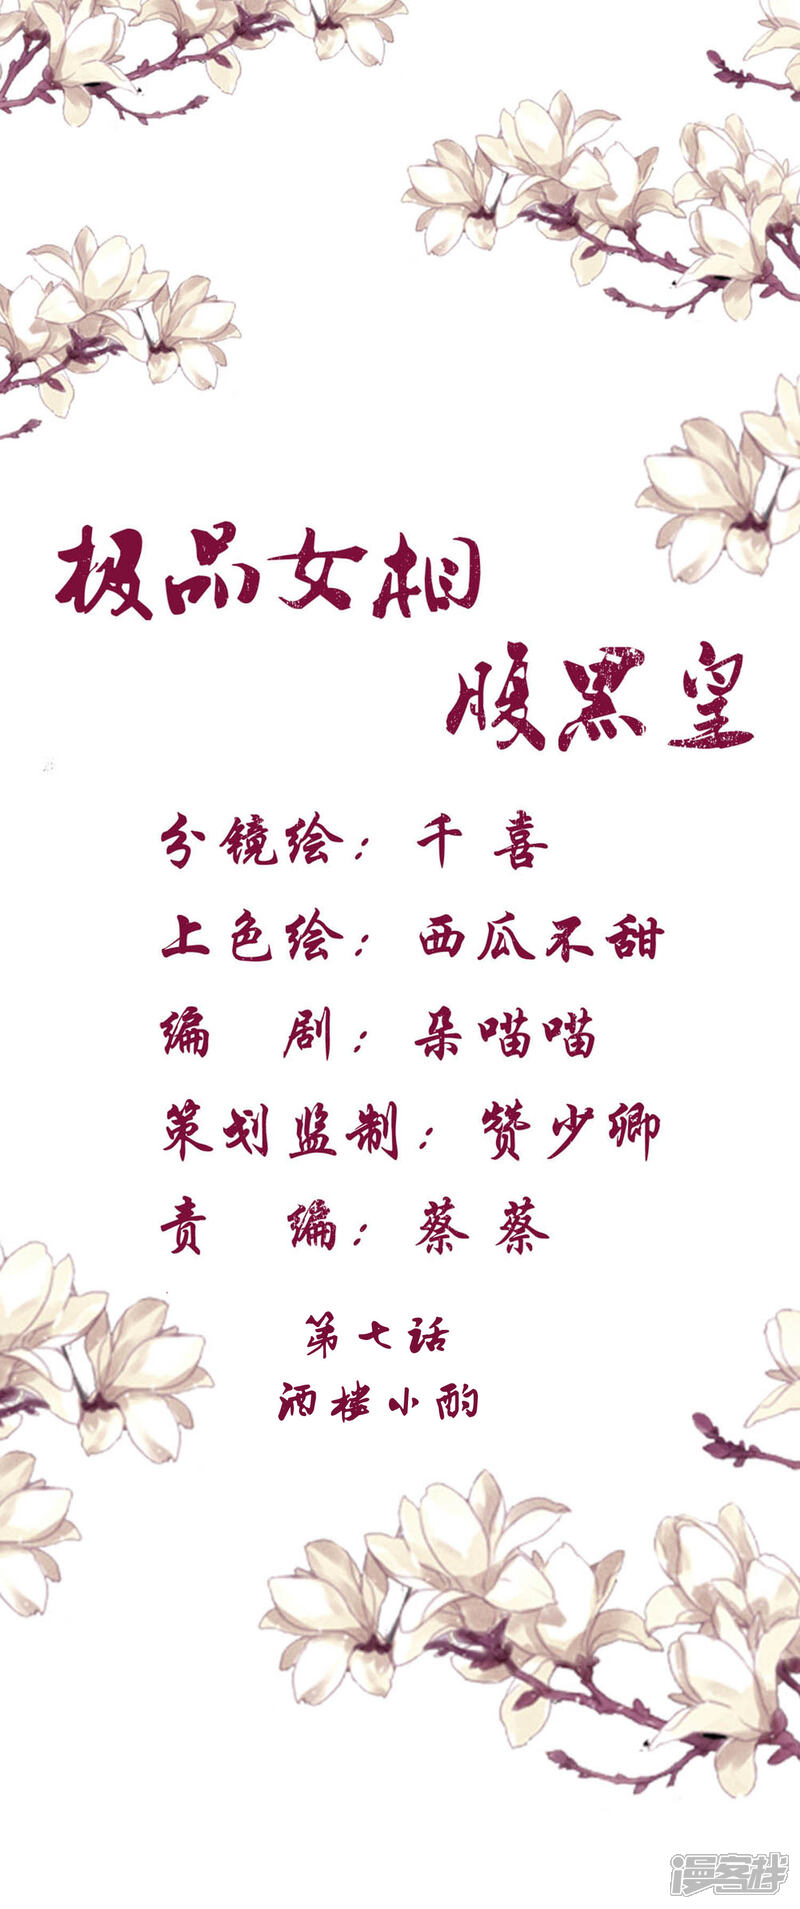 极品女相
腹黑皇
分镜绘：千喜
上色绘：西瓜不甜
编剧：朵喵喵
策划监制：赞少卿
责编：蔡蔡
第七话
酒楼小酌
漫客栈